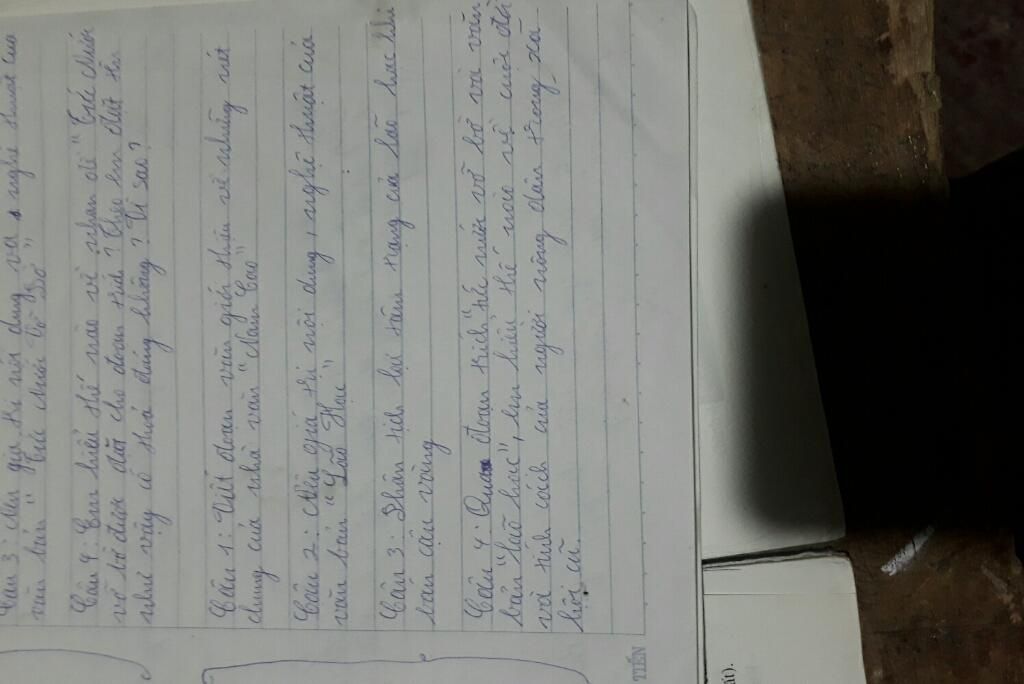 Câu 3: Nêu giá trị nội dung và nghệ thuật của
văn bản " Tức nước Vỡ Bờ"
Câu 4: Em hiểu thế nào về nhan đề " Tức nước
vỡ bờ được đặt cho đoạn trích? Theo em đặt tên
như vậy có thoả đáng không? Vì sao?
Câu 1: Viết đoạn văn giới thiệu về những nét
chung của nhà văn " Nam Cao"
Câu 2: Nêu giá trị nội dung, nghệ thuật của
văn bản " Lão Hạc"
Câu 3: Phân tích lại tâm trạng của lão hạc khi
bán cậu vàng
Câu 4: Qua đoạn trích "tức nước vỡ bờ và văn
bản "lão hạc", em hiểu thế nào về cuộc đời
và tính cách của người nông dân trong xã
hội cũ.
TIẾN
ất).